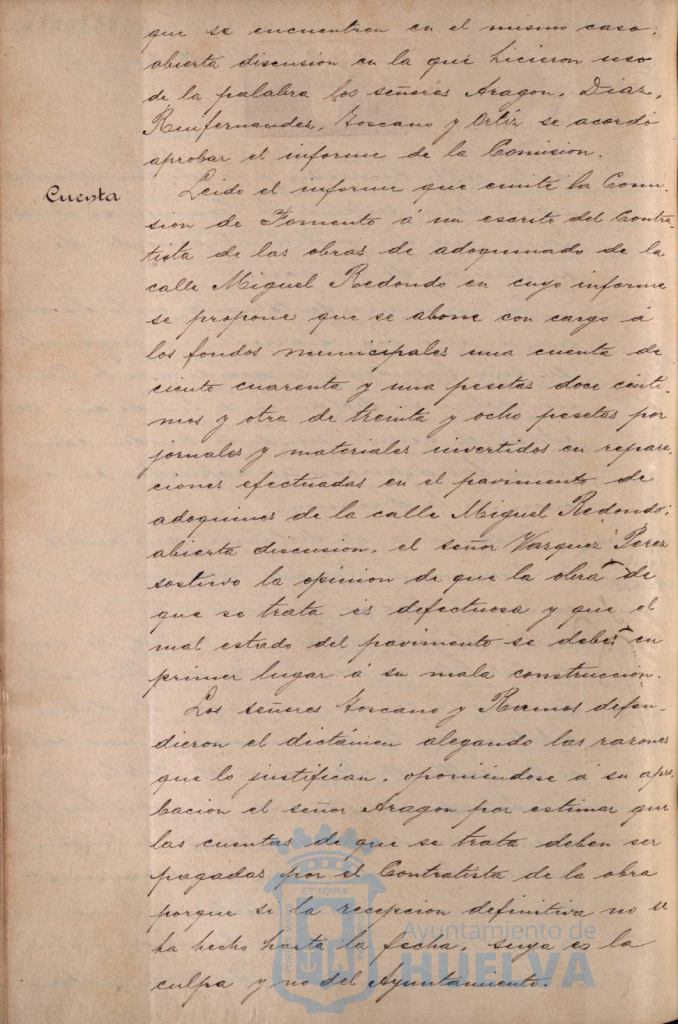 que se encuentren en el mismo caso;
abierta discusion en la que hicieron uso
de la palabra los señores Aragon, Diaz,
Runfernandez, Toscano y Ortíz se acordó
aprobar el informe de la Comision.
Cuenta
Leido el informe que emite la Comi-
sion de Fomento á un escrito del Contra-
tista de las obras de adoquinado de la
calle Miguel Redondo en cuyo informe
se propone que se abone con cargo á
los fondos municipales una cuenta de
ciento cuarenta y una pesetas doce cénti-
mos y otra de treinta y ocho pesetas por
jornales y materiales invertidos en repara-
ciones efectuadas en el pavimento de
adoquines de la calle Miguel Redondo;
abierta discusion, el señor Vazquez Perez
sostuvo la opinion de que la obra de
que se trata es defectuosa y que el
mal estado del pavimento se debe en
primer lugar á su mala construccion.
Los señores Toscano y Ramos defen-
dieron el dictámen alegando las razones
que lo justifican, oponiéndose á su apro-
bacion el señor Aragon por estimar que
las cuentas de que se trata deben ser
pagadas por el Contratista de la obra
porque si la recepcion definitiva no se
ha hecho hasta la fecha, suya es la
culpa y no del Ayuntamiento.
Ayuntamiento de
HUELVA